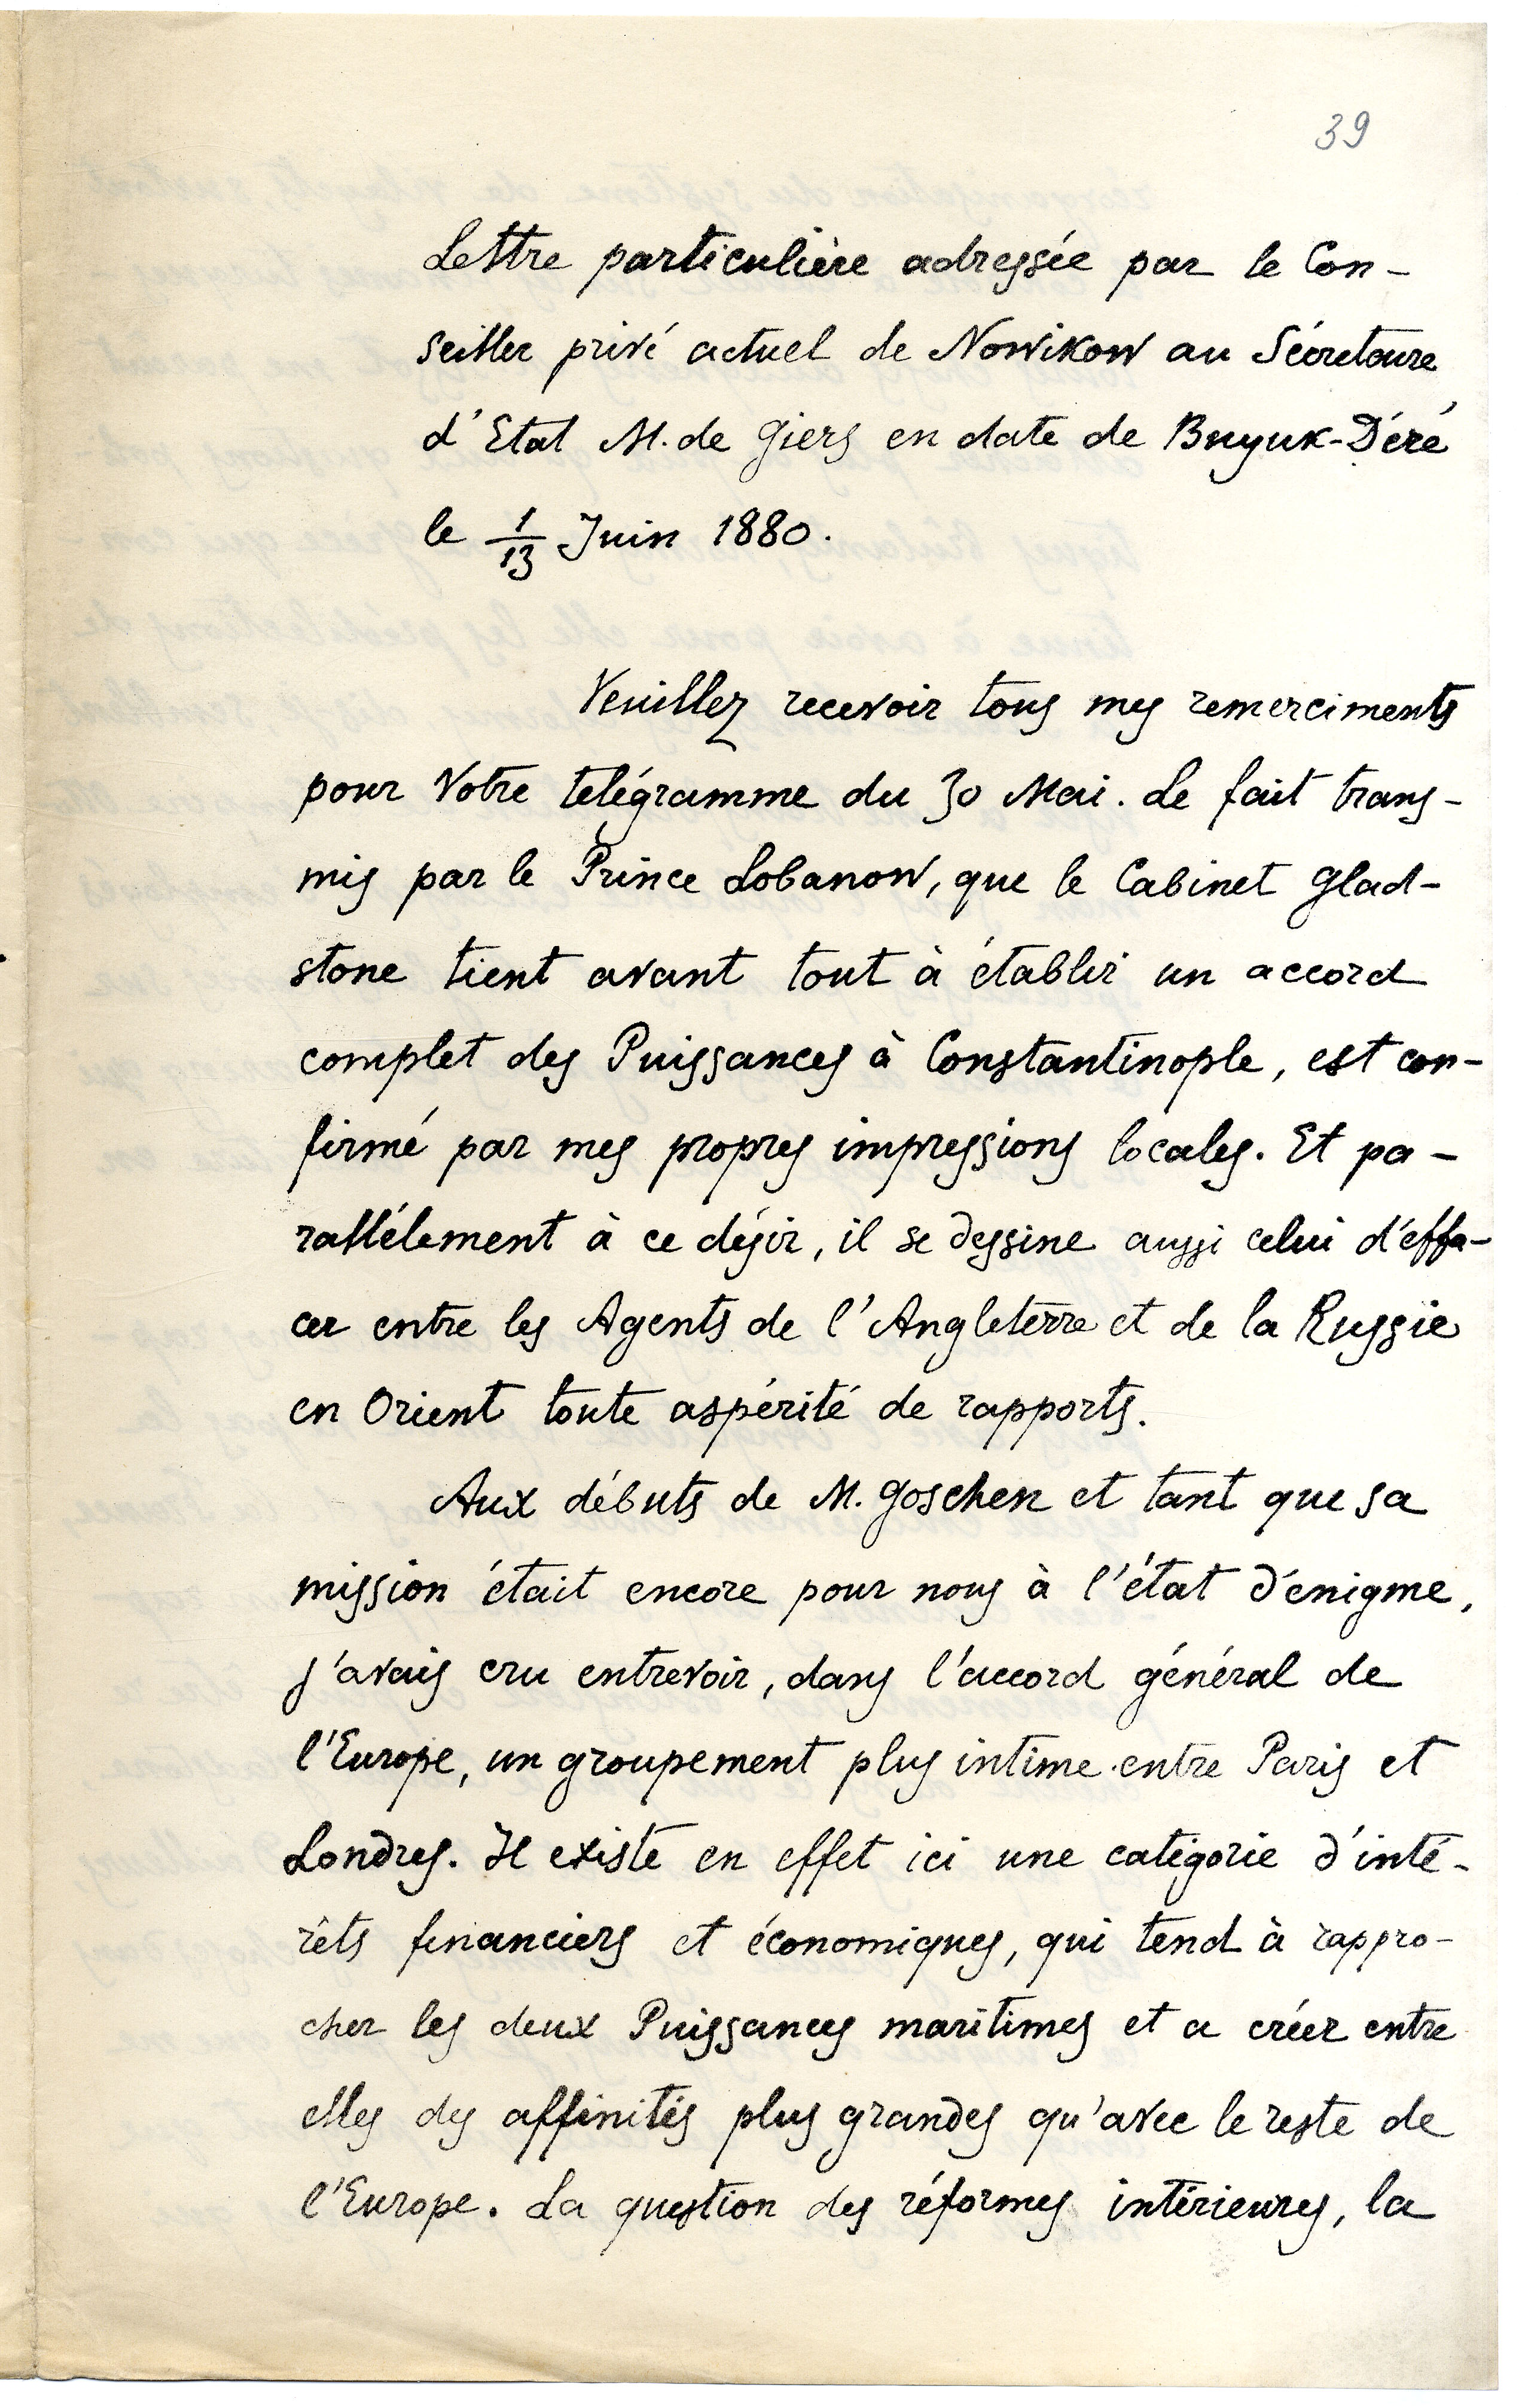 39
Lettre particulière adressée par le Con-
seiller privé actuel de Nowikow au Sécretaire
d'Etat M. de Giers en date de Buyuk-Déré
le 1/13 Juin 1880.
Veuillez recevoir tous mes remerciments
pour Votre telégramme du 30 Mai. Le fait trans-
mis par le Prince Lobanow, que le Cabinet Glad-
stone tient avant tout à établir un accord
complet des Puissances à Constantinople, est con-
firmé par mes propres impressions locales. Et pa-
rallélement à ce désir, il se dessine aussi celui d'éffa-
cer entre les Agents de l'Angleterre et de la Russie
en Orient toute aspérité de rapports.
Aux débuts de M. Goschen et tant que sa
mission était encore pour nous à l'état d'énigme,
j'avais cru entrevoir, dans l'accord général de
l'Europe, un groupement plus intime entre Paris et
Londres. Il existe en effet ici une catégorie d'inté-
rêts financiers et économiques, qui tend à rappro-
cher les deux Puissances maritimes et a créer entre
elles des affinités plus grandes qu'avec le reste de
l'Europe. La question des réformes intérieures, la